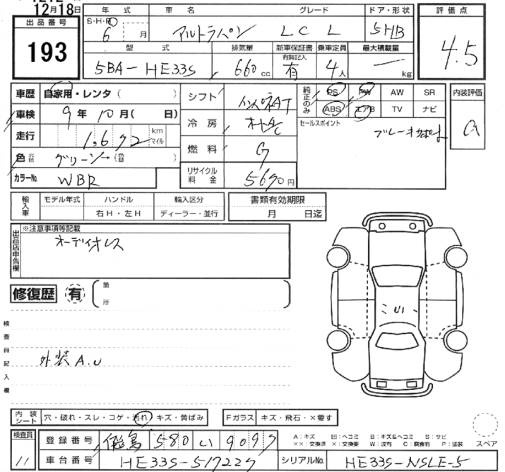 12月18日
出品番号
193
年式 車名 グレード ドア・形状 評価点
S・H・R 6 月 アルトラパン LCL 5HB
4.5
型式 排気量 新車保証書 乗車定員 最大積載量
有償記入 有
5BA-HE33S 660cc 4人 kg
車歴 自家用・レンタ
車検 9年10月( 日)
走行 1,672 km マイル
色 グリーン
カラーNo. WBR
シフト インパネAT
冷房 オートAC
燃料 G
リサイクル料金 5690円
純正のみ PS PW AW SR
ABS エアB TV ナビ
内装評価
A
セールスポイント
ブレーキサポート
輸入車 モデル年式 ハンドル 輸入区分 書類有効期限
右H・左H ディーラー・並行 月 日迄
出品店申告欄
※注意事項等記載
オーディオレス
修復歴 有 箇所
検査員記入欄
外装A.U
内装シート 穴・破れ・スレ・コゲ・汚れ・キズ・黄ばみ Fガラス キズ・飛石・×要す
スペア
検査員 11
登録番号 580 い 9097
A:キズ
車台番号 HE33S-517227 シリアルNo. HE33S-NSLE-5